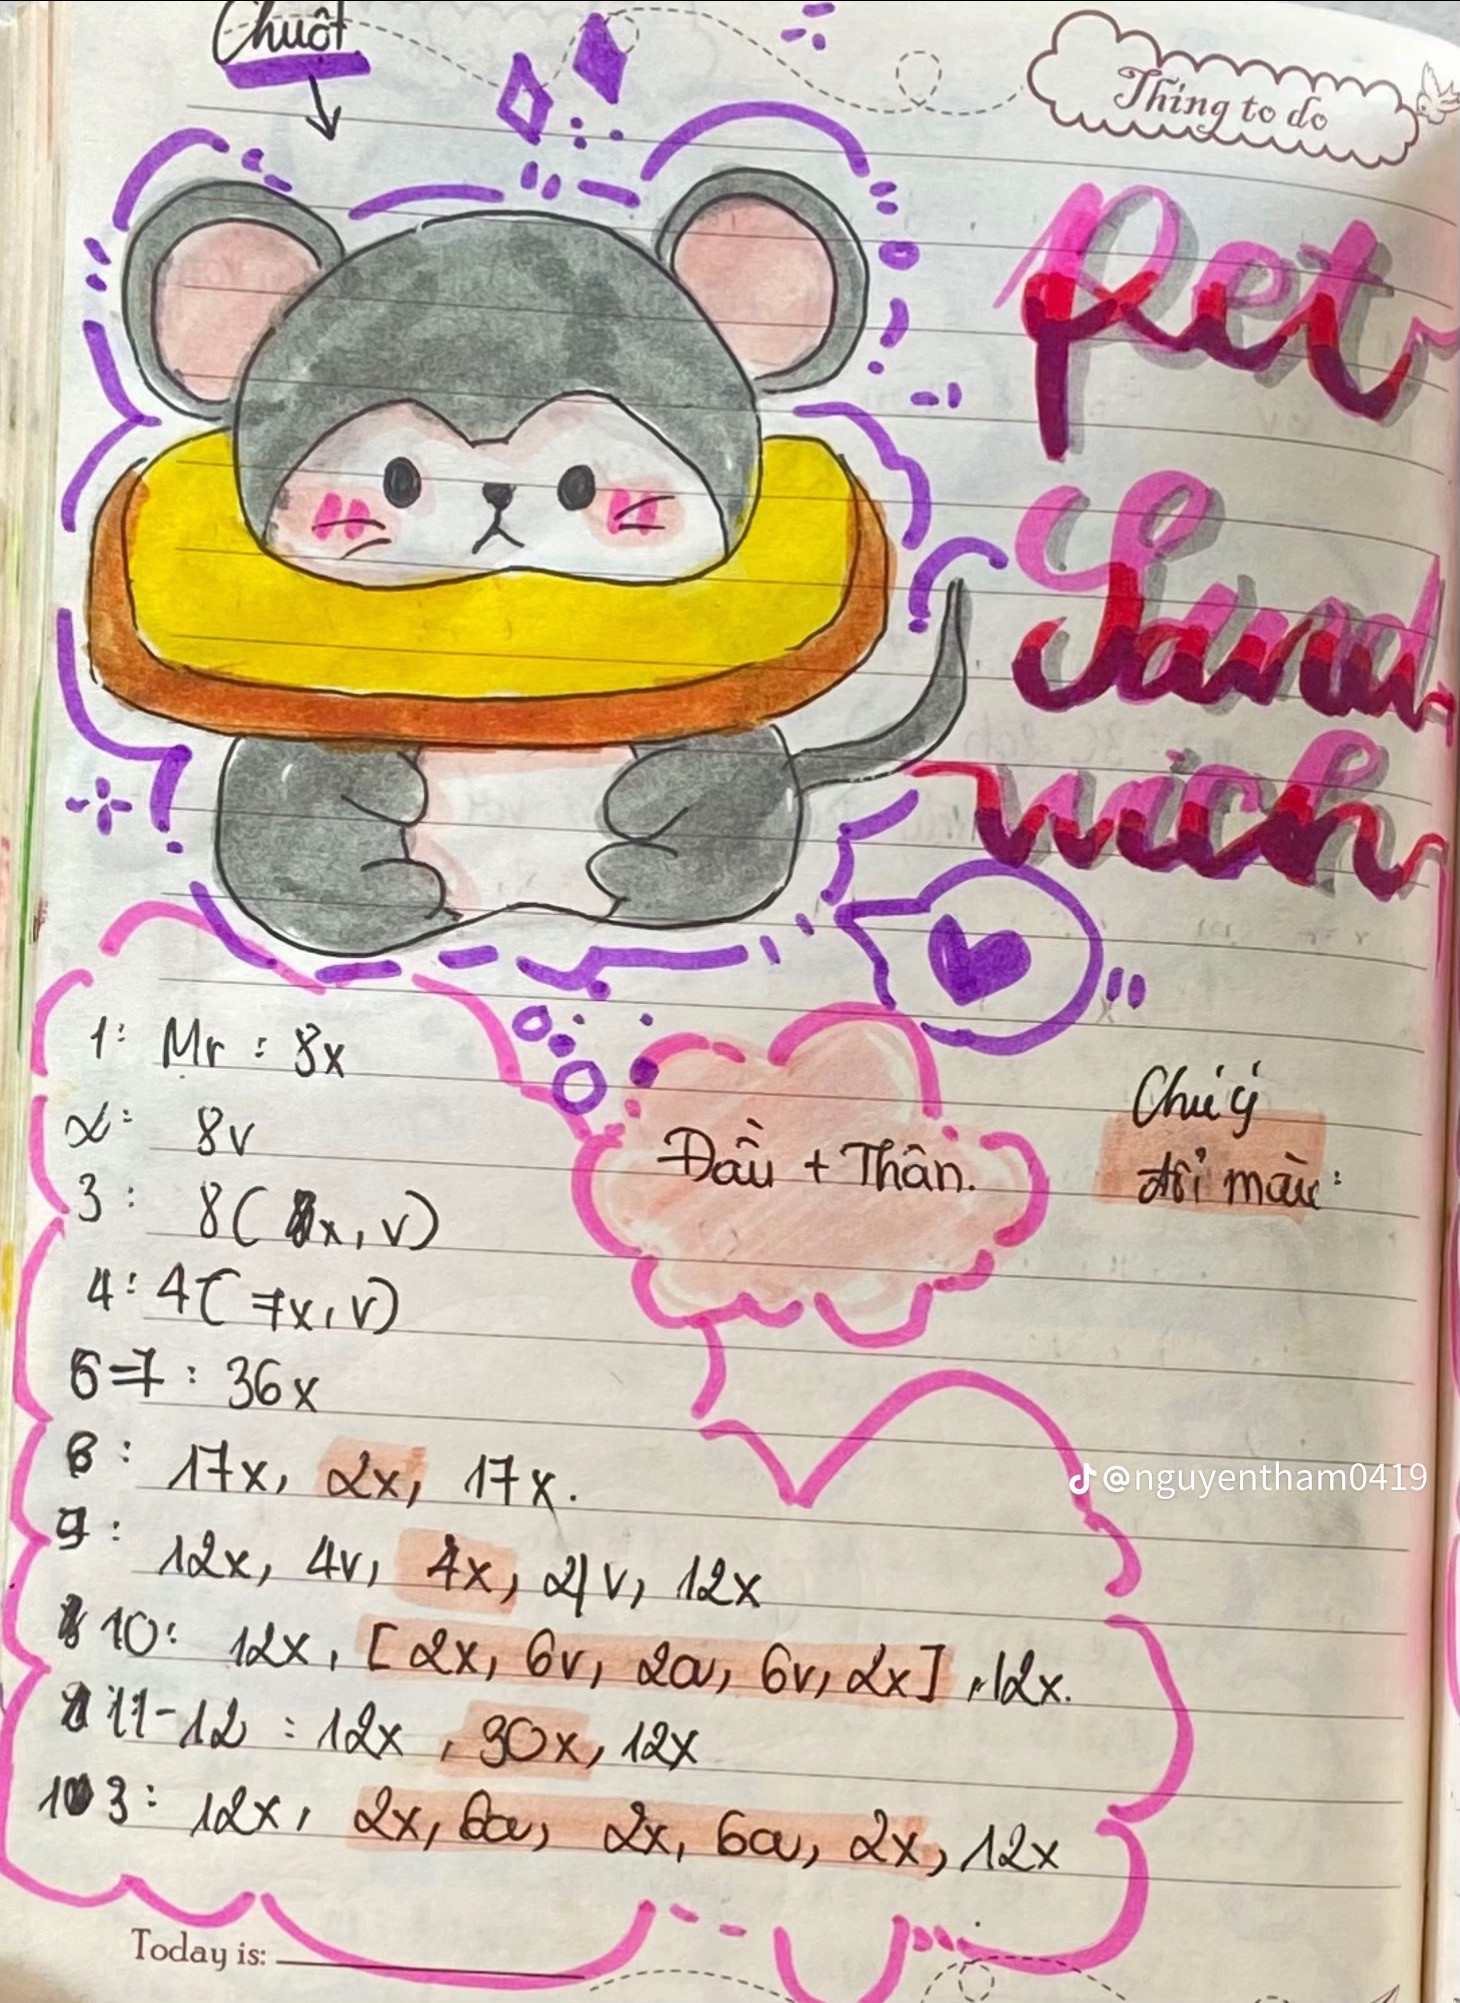 Chuột
Thing to do
Pet
Sand
wich
1: Mr : 8x
2: 8v
3: 8(x, v)
Đầu + Thân.
Chú ý
đổi màu:
4: 4(7x, v)
5-7: 36x
8: 17x, 2x, 17x.
@nguyentham0419
9: 12x, 4v, 4x, 4v, 12x
10: 12x, [2x, 6v, 2a, 6v, 2x], 12x.
11-12: 12x, 30x, 12x
13: 12x, 2x, 6a, 2x, 6a, 2x, 12x
Today is: